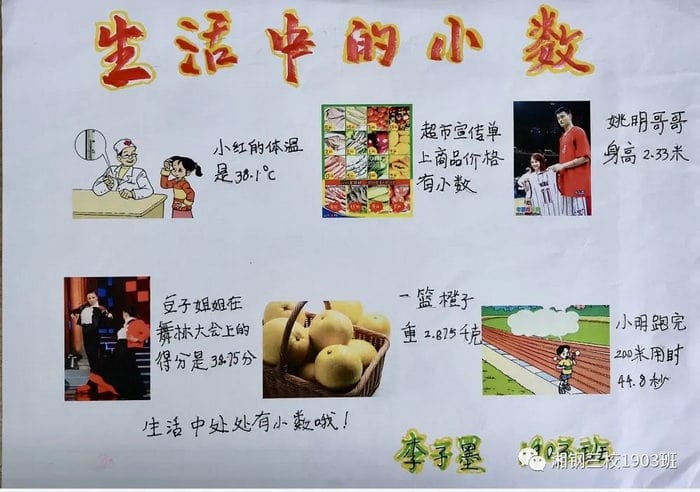 生活中的小数
小红的体温
是38.1℃
超市宣传单
上商品价格
有小数
姚明哥哥
身高2.33米
豆子姐姐在
舞林大会上的
得分是38.75分
一篮橙子
重2.875千克
小明跑完
200米用时
44.8秒
生活中处处有小数哦！
李子墨
湘钢三校1903班